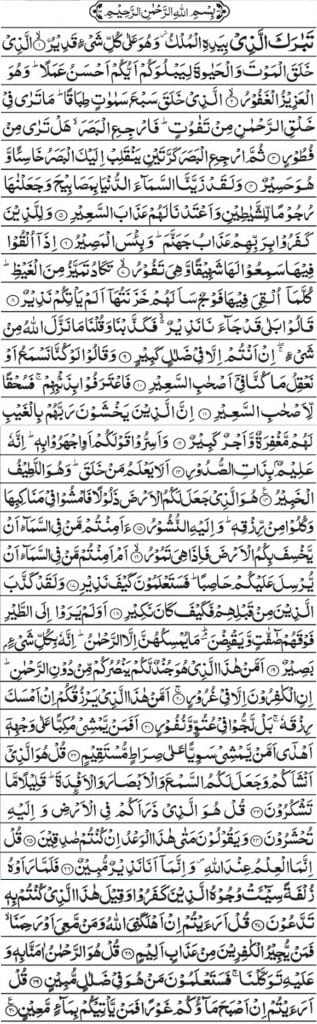 بِسْمِ اللهِ الرَّحْمٰنِ الرَّحِيْمِ
تَبٰرَكَ الَّذِيْ بِيَدِهِ الْمُلْكُ ۡ وَهُوَ عَلٰى كُلِّ شَيْءٍ قَدِيْرُ ۙ﴿۱﴾ الَّذِيْ
خَلَقَ الْمَوْتَ وَالْحَيٰوةَ لِيَبْلُوَكُمْ اَيُّكُمْ اَحْسَنُ عَمَلًا ؕ وَهُوَ
الْعَزِيْزُ الْغَفُوْرُ ۙ﴿۲﴾ الَّذِيْ خَلَقَ سَبْعَ سَمٰوٰتٍ طِبَاقًا ؕ مَا تَرٰى فِيْ
خَلْقِ الرَّحْمٰنِ مِنْ تَفٰوُتٍ ؕ فَارْجِعِ الْبَصَرَ ۙ هَلْ تَرٰى مِنْ
فُطُوْرٍ ﴿۳﴾ ثُمَّ ارْجِعِ الْبَصَرَ كَرَّتَيْنِ يَنْقَلِبْ اِلَيْكَ الْبَصَرُ خَاسِئًا وَّ
هُوَ حَسِيْرٌ ﴿۴﴾ وَلَقَدْ زَيَّنَّا السَّمَآءَ الدُّنْيَا بِمَصَابِيْحَ وَجَعَلْنٰهَا
رُجُوْمًا لِّلشَّيٰطِيْنِ وَاَعْتَدْنَا لَهُمْ عَذَابَ السَّعِيْرِ ﴿۵﴾ وَلِلَّذِيْنَ
كَفَرُوْا بِرَبِّهِمْ عَذَابُ جَهَنَّمَ ؕ وَبِئْسَ الْمَصِيْرُ ﴿۶﴾ اِذَآ اُلْقُوْا
فِيْهَا سَمِعُوْا لَهَا شَهِيْقًا وَّهِيَ تَفُوْرُ ۙ﴿۷﴾ تَكَادُ تَمَيَّزُ مِنَ الْغَيْظِ ؕ
كُلَّمَآ اُلْقِيَ فِيْهَا فَوْجٌ سَاَلَهُمْ خَزَنَتُهَآ اَلَمْ يَاْتِكُمْ نَذِيْرٌ ﴿۸﴾
قَالُوْا بَلٰى قَدْ جَآءَنَا نَذِيْرٌ ۙ فَكَذَّبْنَا وَقُلْنَا مَا نَزَّلَ اللهُ مِنْ
شَيْءٍ ۚ اِنْ اَنْتُمْ اِلَّا فِيْ ضَلٰلٍ كَبِيْرٍ ﴿۹﴾ وَقَالُوْا لَوْ كُنَّا نَسْمَعُ اَوْ
نَعْقِلُ مَا كُنَّا فِيْٓ اَصْحٰبِ السَّعِيْرِ ﴿۱۰﴾ فَاعْتَرَفُوْا بِذَنْۢبِهِمْ ۚ فَسُحْقًا
لِّاَصْحٰبِ السَّعِيْرِ ﴿۱۱﴾ اِنَّ الَّذِيْنَ يَخْشَوْنَ رَبَّهُمْ بِالْغَيْبِ
لَهُمْ مَّغْفِرَةٌ وَّاَجْرٌ كَبِيْرٌ ﴿۱۲﴾ وَاَسِرُّوْا قَوْلَكُمْ اَوِ اجْهَرُوْا بِهٖ ؕ اِنَّهٗ
عَلِيْمٌۢ بِذَاتِ الصُّدُوْرِ ﴿۱۳﴾ اَلَا يَعْلَمُ مَنْ خَلَقَ ؕ وَهُوَ اللَّطِيْفُ
الْخَبِيْرُ ﴿۱۴﴾ هُوَ الَّذِيْ جَعَلَ لَكُمُ الْاَرْضَ ذَلُوْلًا فَامْشُوْا فِيْ مَنَاكِبِهَا
وَكُلُوْا مِنْ رِّزْقِهٖ ؕ وَاِلَيْهِ النُّشُوْرُ ﴿۱۵﴾ ءَاَمِنْتُمْ مَّنْ فِي السَّمَآءِ اَنْ
يَّخْسِفَ بِكُمُ الْاَرْضَ فَاِذَا هِيَ تَمُوْرُ ۙ﴿۱۶﴾ اَمْ اَمِنْتُمْ مَّنْ فِي السَّمَآءِ اَنْ
يُّرْسِلَ عَلَيْكُمْ حَاصِبًا ؕ فَسَتَعْلَمُوْنَ كَيْفَ نَذِيْرِ ﴿۱۷﴾ وَلَقَدْ كَذَّبَ
الَّذِيْنَ مِنْ قَبْلِهِمْ فَكَيْفَ كَانَ نَكِيْرِ ﴿۱۸﴾ اَوَلَمْ يَرَوْا اِلَى الطَّيْرِ
فَوْقَهُمْ صٰٓفّٰتٍ وَّيَقْبِضْنَ ؔ مَا يُمْسِكُهُنَّ اِلَّا الرَّحْمٰنُ ؕ اِنَّهٗ بِكُلِّ شَيْءٍۢ
بَصِيْرٌ ﴿۱۹﴾ اَمَّنْ هٰذَا الَّذِيْ هُوَ جُنْدٌ لَّكُمْ يَنْصُرُكُمْ مِّنْ دُوْنِ الرَّحْمٰنِ ؕ
اِنِ الْكٰفِرُوْنَ اِلَّا فِيْ غُرُوْرٍ ۚ﴿۲۰﴾ اَمَّنْ هٰذَا الَّذِيْ يَرْزُقُكُمْ اِنْ اَمْسَكَ
رِزْقَهٗ ۚ بَلْ لَّجُّوْا فِيْ عُتُوٍّ وَّنُفُوْرٍ ﴿۲۱﴾ اَفَمَنْ يَّمْشِيْ مُكِبًّا عَلٰى وَجْهِهٖٓ
اَهْدٰٓى اَمَّنْ يَّمْشِيْ سَوِيًّا عَلٰى صِرَاطٍ مُّسْتَقِيْمٍ ﴿۲۲﴾ قُلْ هُوَ الَّذِيْٓ
اَنْشَاَكُمْ وَجَعَلَ لَكُمُ السَّمْعَ وَالْاَبْصَارَ وَالْاَفْـِٕدَةَ ؕ قَلِيْلًا مَّا
تَشْكُرُوْنَ ﴿۲۳﴾ قُلْ هُوَ الَّذِيْ ذَرَاَكُمْ فِي الْاَرْضِ وَاِلَيْهِ
تُحْشَرُوْنَ ﴿۲۴﴾ وَيَقُوْلُوْنَ مَتٰى هٰذَا الْوَعْدُ اِنْ كُنْتُمْ صٰدِقِيْنَ ﴿۲۵﴾ قُلْ
اِنَّمَا الْعِلْمُ عِنْدَ اللهِ ۪ وَاِنَّمَآ اَنَا نَذِيْرٌ مُّبِيْنٌ ﴿۲۶﴾ فَلَمَّا رَاَوْهُ
زُلْفَةً سِيْٓـَٔتْ وُجُوْهُ الَّذِيْنَ كَفَرُوْا وَقِيْلَ هٰذَا الَّذِيْ كُنْتُمْ بِهٖ
تَدَّعُوْنَ ﴿۲۷﴾ قُلْ اَرَءَيْتُمْ اِنْ اَهْلَكَنِيَ اللهُ وَمَنْ مَّعِيَ اَوْ رَحِمَنَا ۙ
فَمَنْ يُّجِيْرُ الْكٰفِرِيْنَ مِنْ عَذَابٍ اَلِيْمٍ ﴿۲۸﴾ قُلْ هُوَ الرَّحْمٰنُ اٰمَنَّا بِهٖ وَ
عَلَيْهِ تَوَكَّلْنَا ۚ فَسَتَعْلَمُوْنَ مَنْ هُوَ فِيْ ضَلٰلٍ مُّبِيْنٍ ﴿۲۹﴾ قُلْ
اَرَءَيْتُمْ اِنْ اَصْبَحَ مَآؤُكُمْ غَوْرًا فَمَنْ يَّاْتِيْكُمْ بِمَآءٍ مَّعِيْنٍ ﴿۳۰﴾